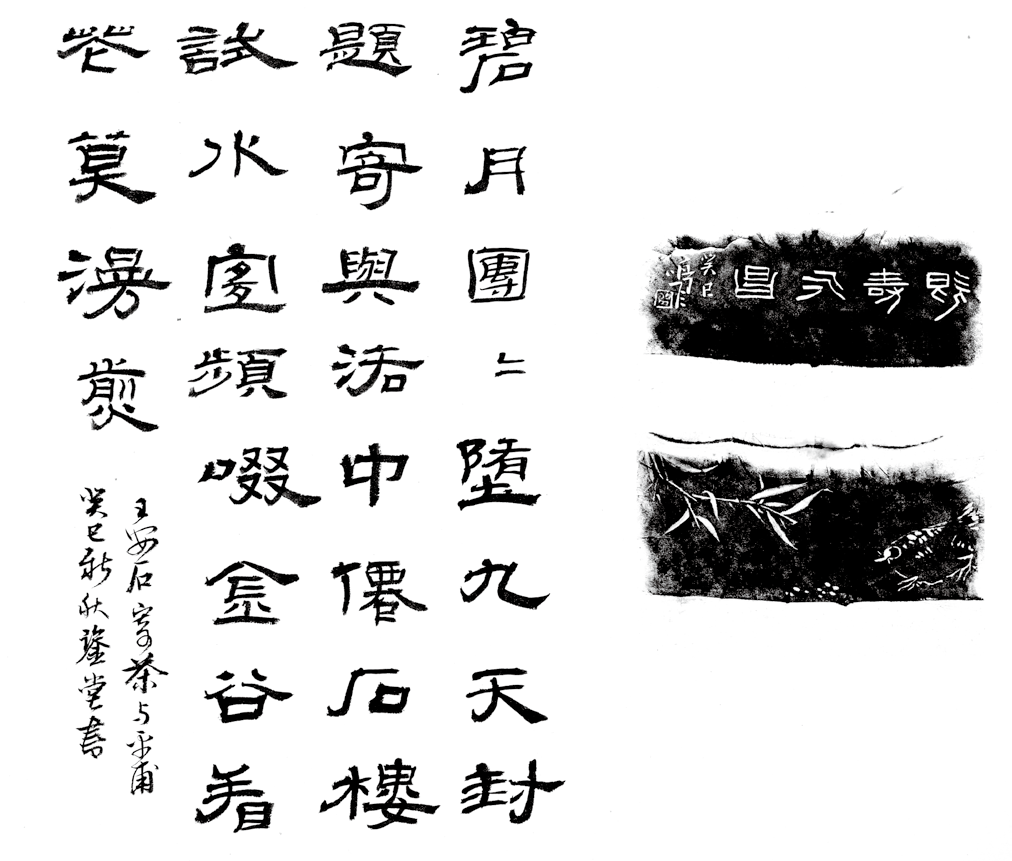 既壽永昌
癸巳
碧月團〻墮九天封
題寄與洛中僊石樓
試水宜頻啜金谷看
花莫漫煎
王安石寄茶与平甫
癸巳新秋鑒堂書